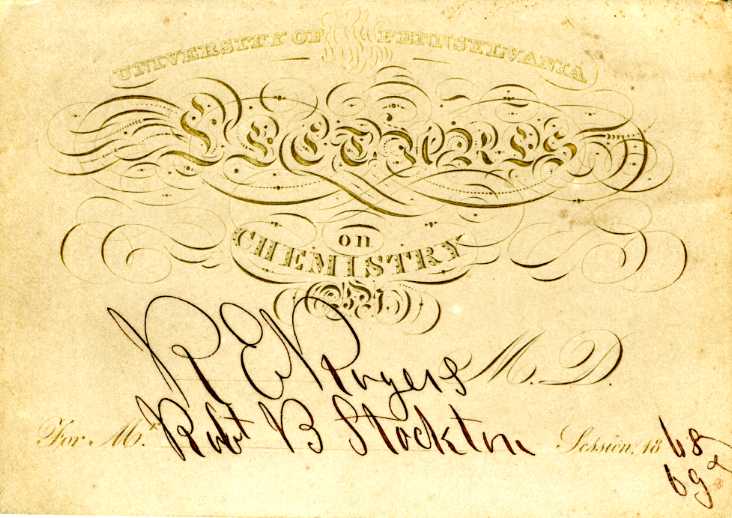 UNIVERSITY OF PENNSYLVANIA
LECTURES
on
CHEMISTRY
BY
R E Rogers M.D.
For Mr. Robt B Stockton Session, 18 68
69